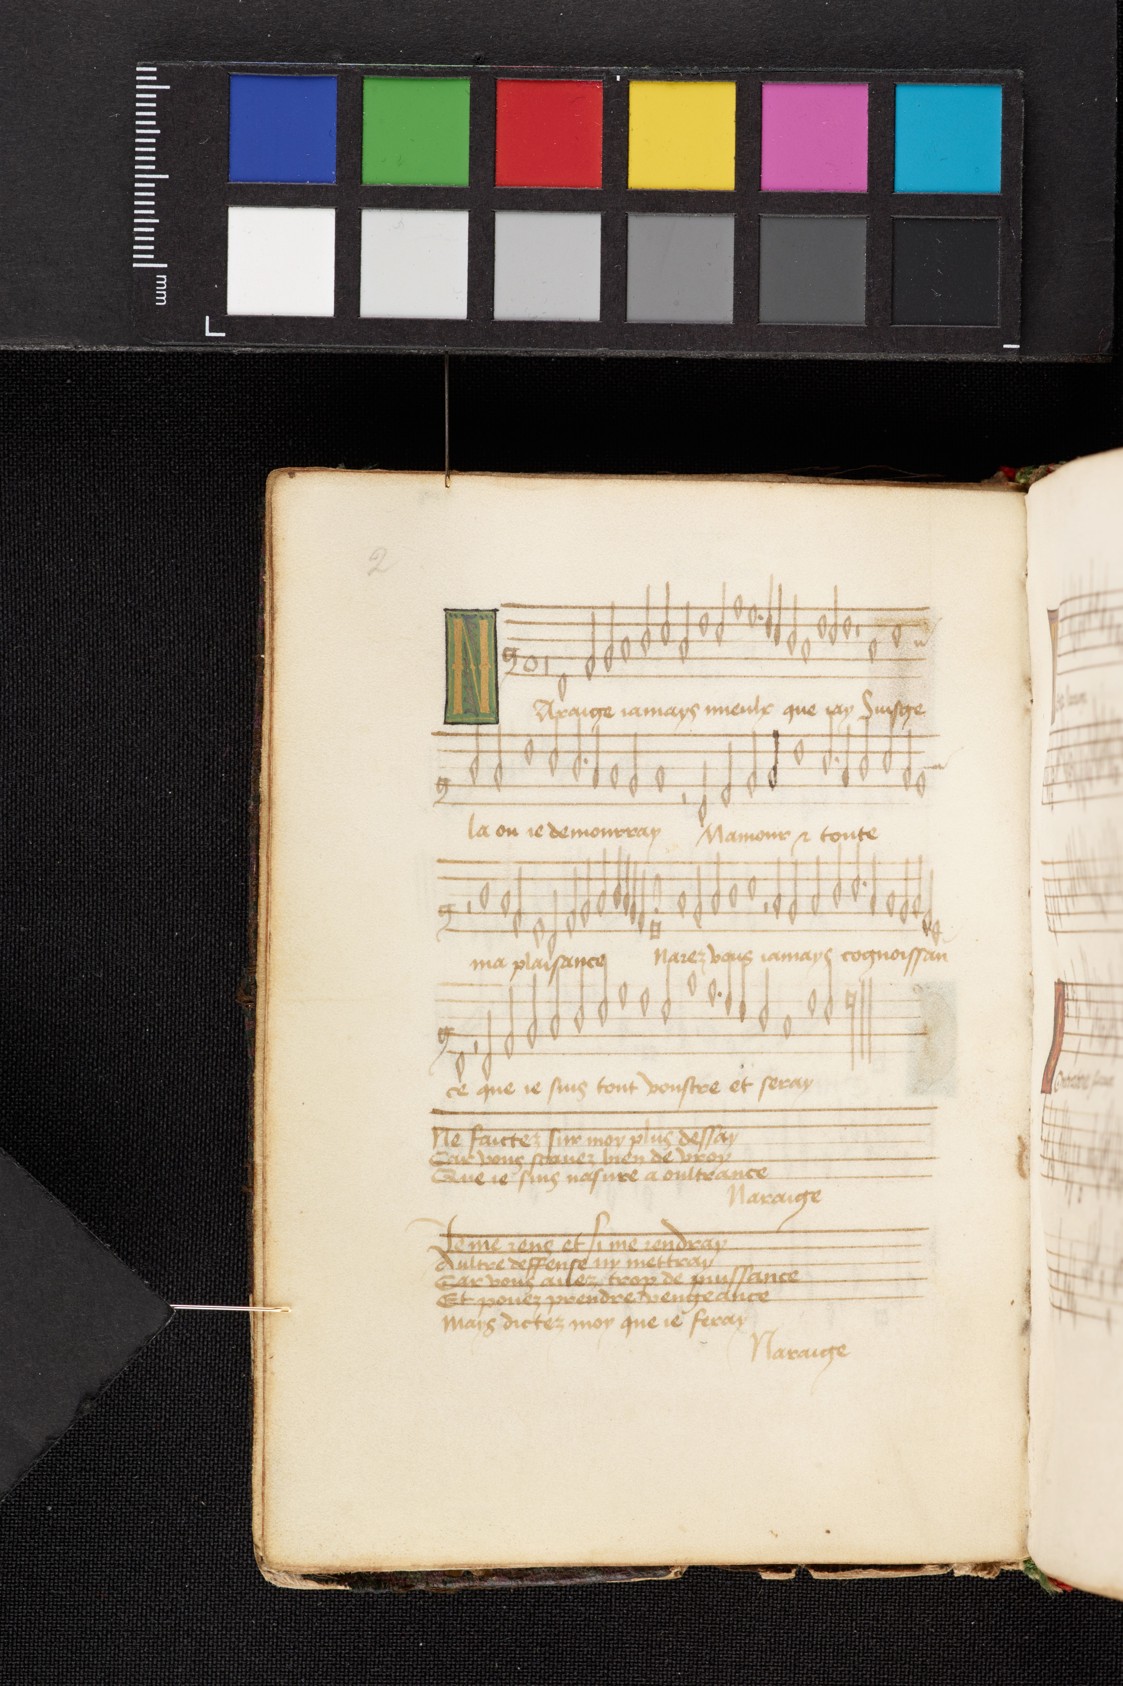 mm
2
N
Araige iamays mieulx que iay Suisge
la ou ie demourray Mamour & toute
ma plaisance Narez vous iamays cognoissan
ce que ie suis tout voustre et seray
Ne faictez sur moy plus dessay
Car vous scavez bien de vray
Que ie suis nasvre a oultrance
Naraige
Je me rens et si me rendray
Aultre deffense ny mettray
Car vous avez trop de puissance
Et povez prendre vengeance
Mays dictez moy que ie feray
Naraige